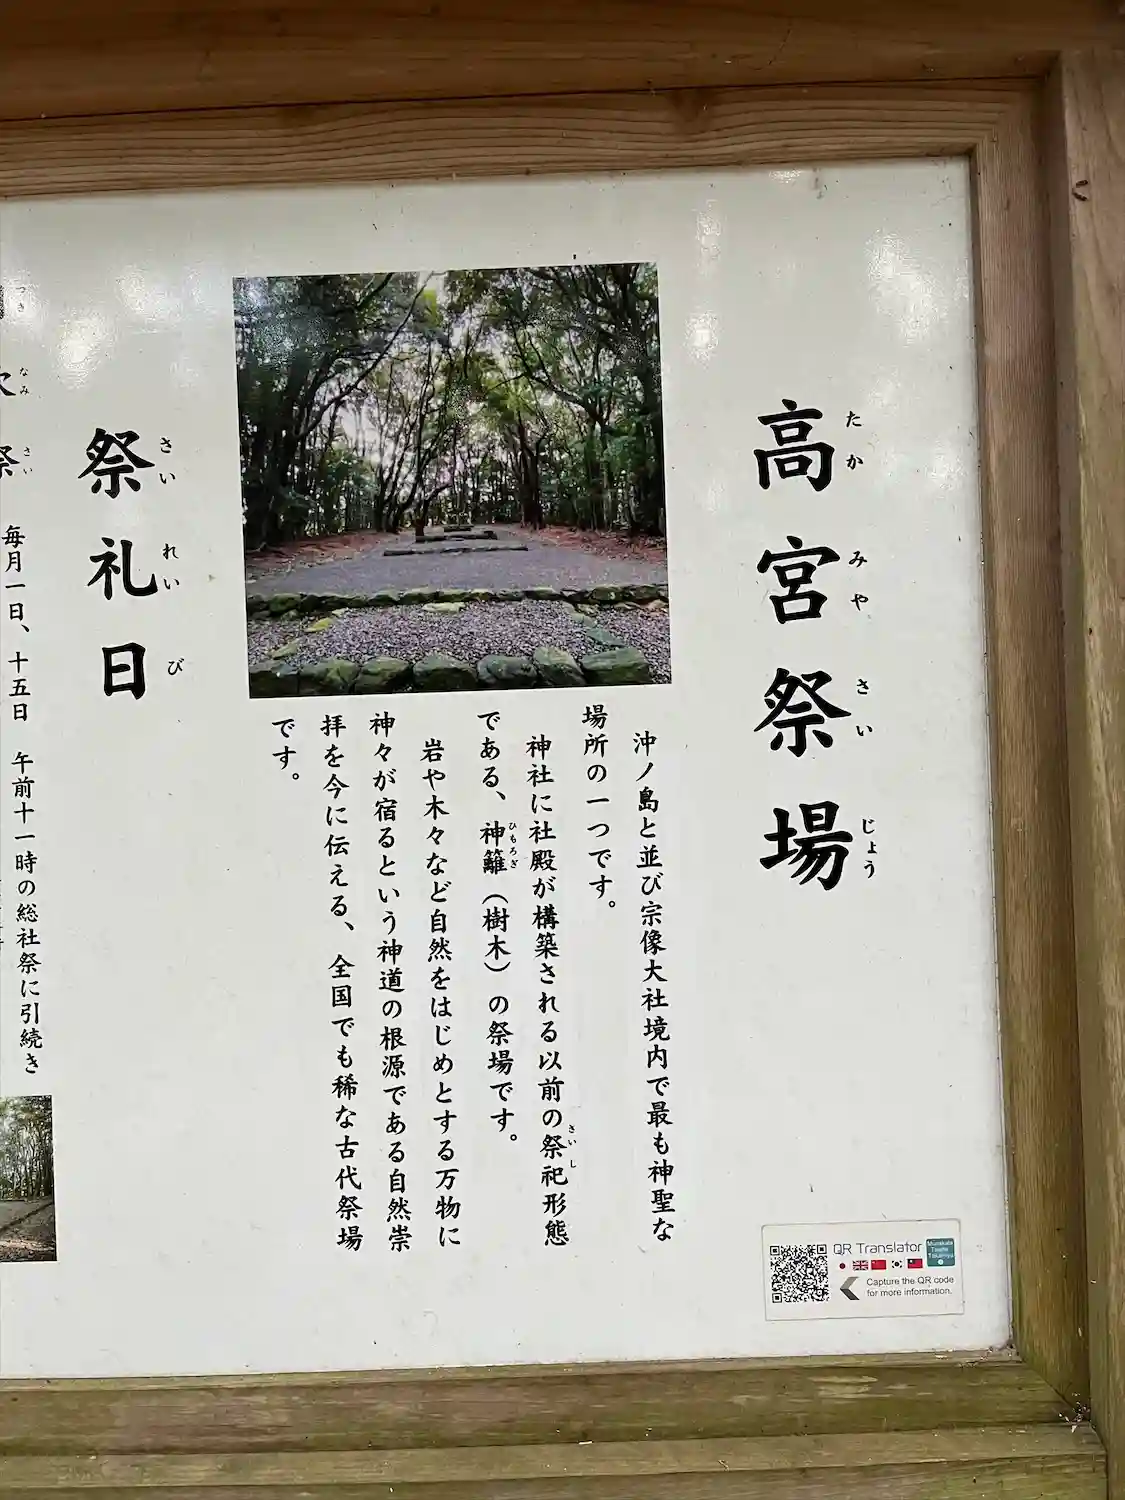 高宮祭場
たかみやさいじょう
沖ノ島と並び宗像大社境内で最も神聖な
場所の一つです。
神社に社殿が構築される以前の祭祀形態
さいし
である、神籬（樹木）の祭場です。
ひもろぎ
岩や木々など自然をはじめとする万物に
神々が宿るという神道の根源である自然崇
拝を今に伝える、全国でも稀な古代祭場
です。
祭礼日
さいれいび
つき
なみ
さい
次祭
毎月一日、十五日 午前十一時の総社祭に引続き
QR Translator
Munakata
Taisha
Takamiya
Capture the QR code
for more information.